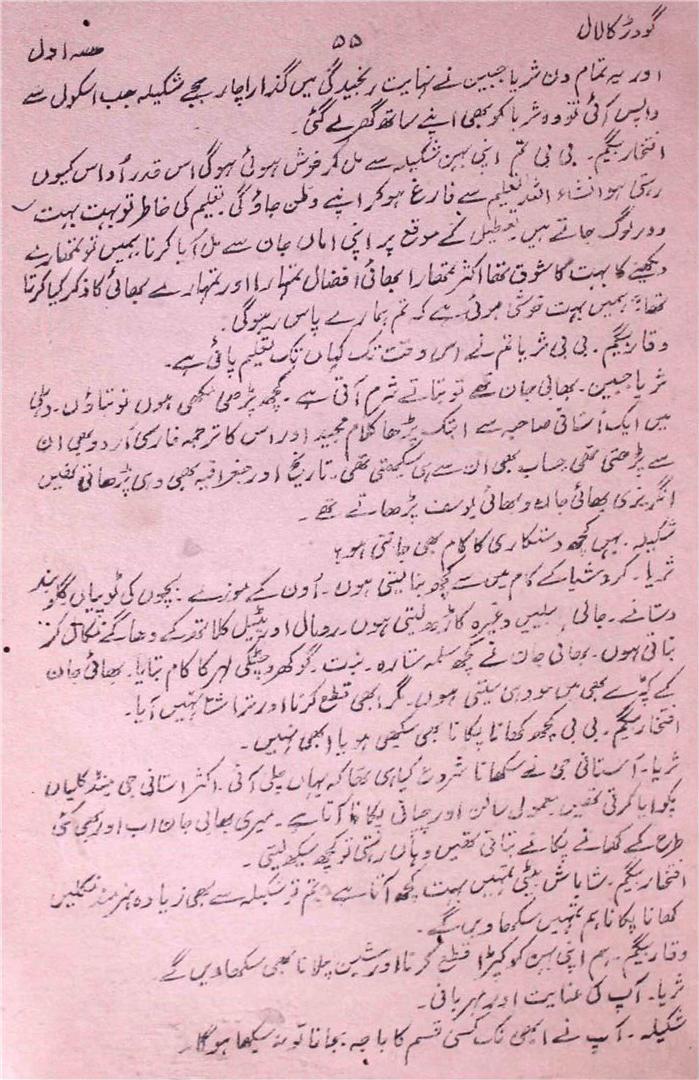 گودڑ کا لال
۵۵
حصہ اول
اور یہ تمام دن ثریا جبین نے نہایت رنجیدگی میں گذارا چار بجے شکیلہ جب اسکول سے
واپس آئی تو وہ ثریا کو بھی اپنے ساتھ گھر لے گئی۔
افتخار بیگم۔ بی بی تم اپنی بہن شکیلہ سے مل کر خوش ہوئی ہوگی اس قدر اُداس کیوں
رہتی ہو انشاء اللہ تعلیم سے فارغ ہو کر اپنے وطن جاؤ گی۔ تعلیم کی خاطر تو بہت بہت
دور لوگ جاتے ہیں۔ تعطیل کے موقع پر اپنی اماں جان سے مل آیا کرنا ہمیں تو تمھارے
دیکھنے کا بہت شوق تھا اکثر تمھارا بھائی افضال تمہارا اور تمہارے بھائی کا ذکر کیا کرتا
تھا۔ ہمیں بہت خوشی ہوئی ہے کہ تم ہمارے پاس رہو گی۔
وقار بیگم۔ بی بی ثریا تم نے اس وقت تک کہاں تک تعلیم پائی ہے۔
ثریا جبین۔ بھابی جان مجھے تو بتاتے شرم آتی ہے۔ کچھ پڑھی لکھی ہوں تو بتاؤں۔ دہلی
میں ایک اُستانی صاحبہ سے ابتک پڑھا کلام مجید اور اس کا ترجمہ فارسی اُردو بھی ان
سے پڑھتی تھی۔ حساب بھی ان سے ہی سیکھتی تھی۔ تاریخ اور جغرافیہ بھی وہی پڑھاتی تھیں
انگریزی بھائی جان و بھائی یوسف پڑھاتے تھے۔
شکیلہ۔ بہن کچھ دستکاری کا کام بھی جانتی ہو؟
ثریا۔ کروشیا کے کام میں سے کچھ بنا لیتی ہوں۔ اُون کے موزے۔ بچوں کی ٹوپیاں گلوبند
دستانے۔ جالی بیلیں وغیرہ کاڑھ لیتی ہوں۔ رومال اور ٹیبل کلاتھ کے دھاگے نکال کر
بناتی ہوں۔ بھابی جان نے کچھ سلمہ ستارہ۔ بنت۔ گوکھرو چٹکی لہر کا کام بتایا۔ بھائی جان
کے کپڑے بھی میں خود ہی سیتی ہوں۔ مگر ابھی قطع کرنا اور تراشنا نہیں آیا۔
افتخار بیگم۔ بی بی کچھ کھانا پکانا بھی سیکھی ہو یا ابھی نہیں۔
ثریا۔ اُستانی جی نے سکھانا شروع کیا ہی تھا کہ یہاں چلی آئی۔ اکثر استانی جی ہنڈکلیاں
پکوایا کرتی تھیں۔ معمولی سالن اور چپاتی پکانا آتا ہے۔ میری بھابی جان اب اور بھی کئی
طرح کے کھانے پکانے بتاتی تھیں وہاں رہتی تو کچھ سیکھ لیتی۔
افتخار بیگم۔ شاباش بیٹی تمہیں بہت کچھ آتا ہے۔ تم تو شکیلہ سے بھی زیادہ ہنرمند نکلیں
کھانا پکانا ہم تمہیں سکھا دیں گے۔
وقار بیگم۔ ہم اپنی بہن کو کپڑا قطع کرنا اور مشین چلانا بھی سکھا دیں گے۔
ثریا۔ آپ کی عنایت اور مہربانی۔
شکیلہ۔ آپ نے ابھی تک کسی قسم کا باجہ بجانا تو نہ سیکھا ہو گا۔